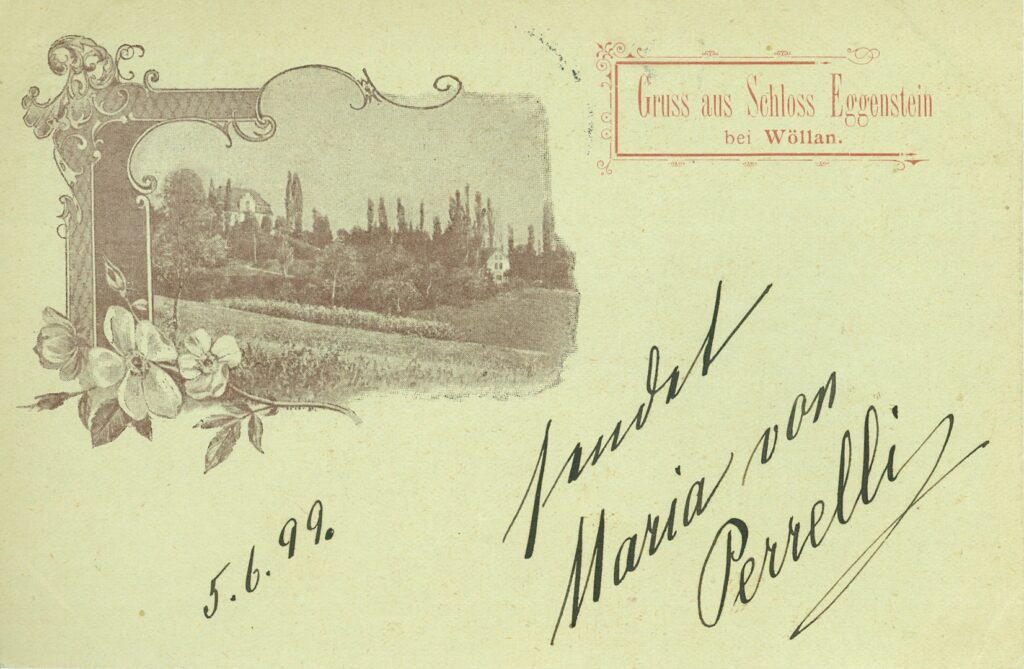 Gruss aus Schloss Eggenstein
bei Wöllan.
sendet
Maria von
Perrelli
5.6.99.